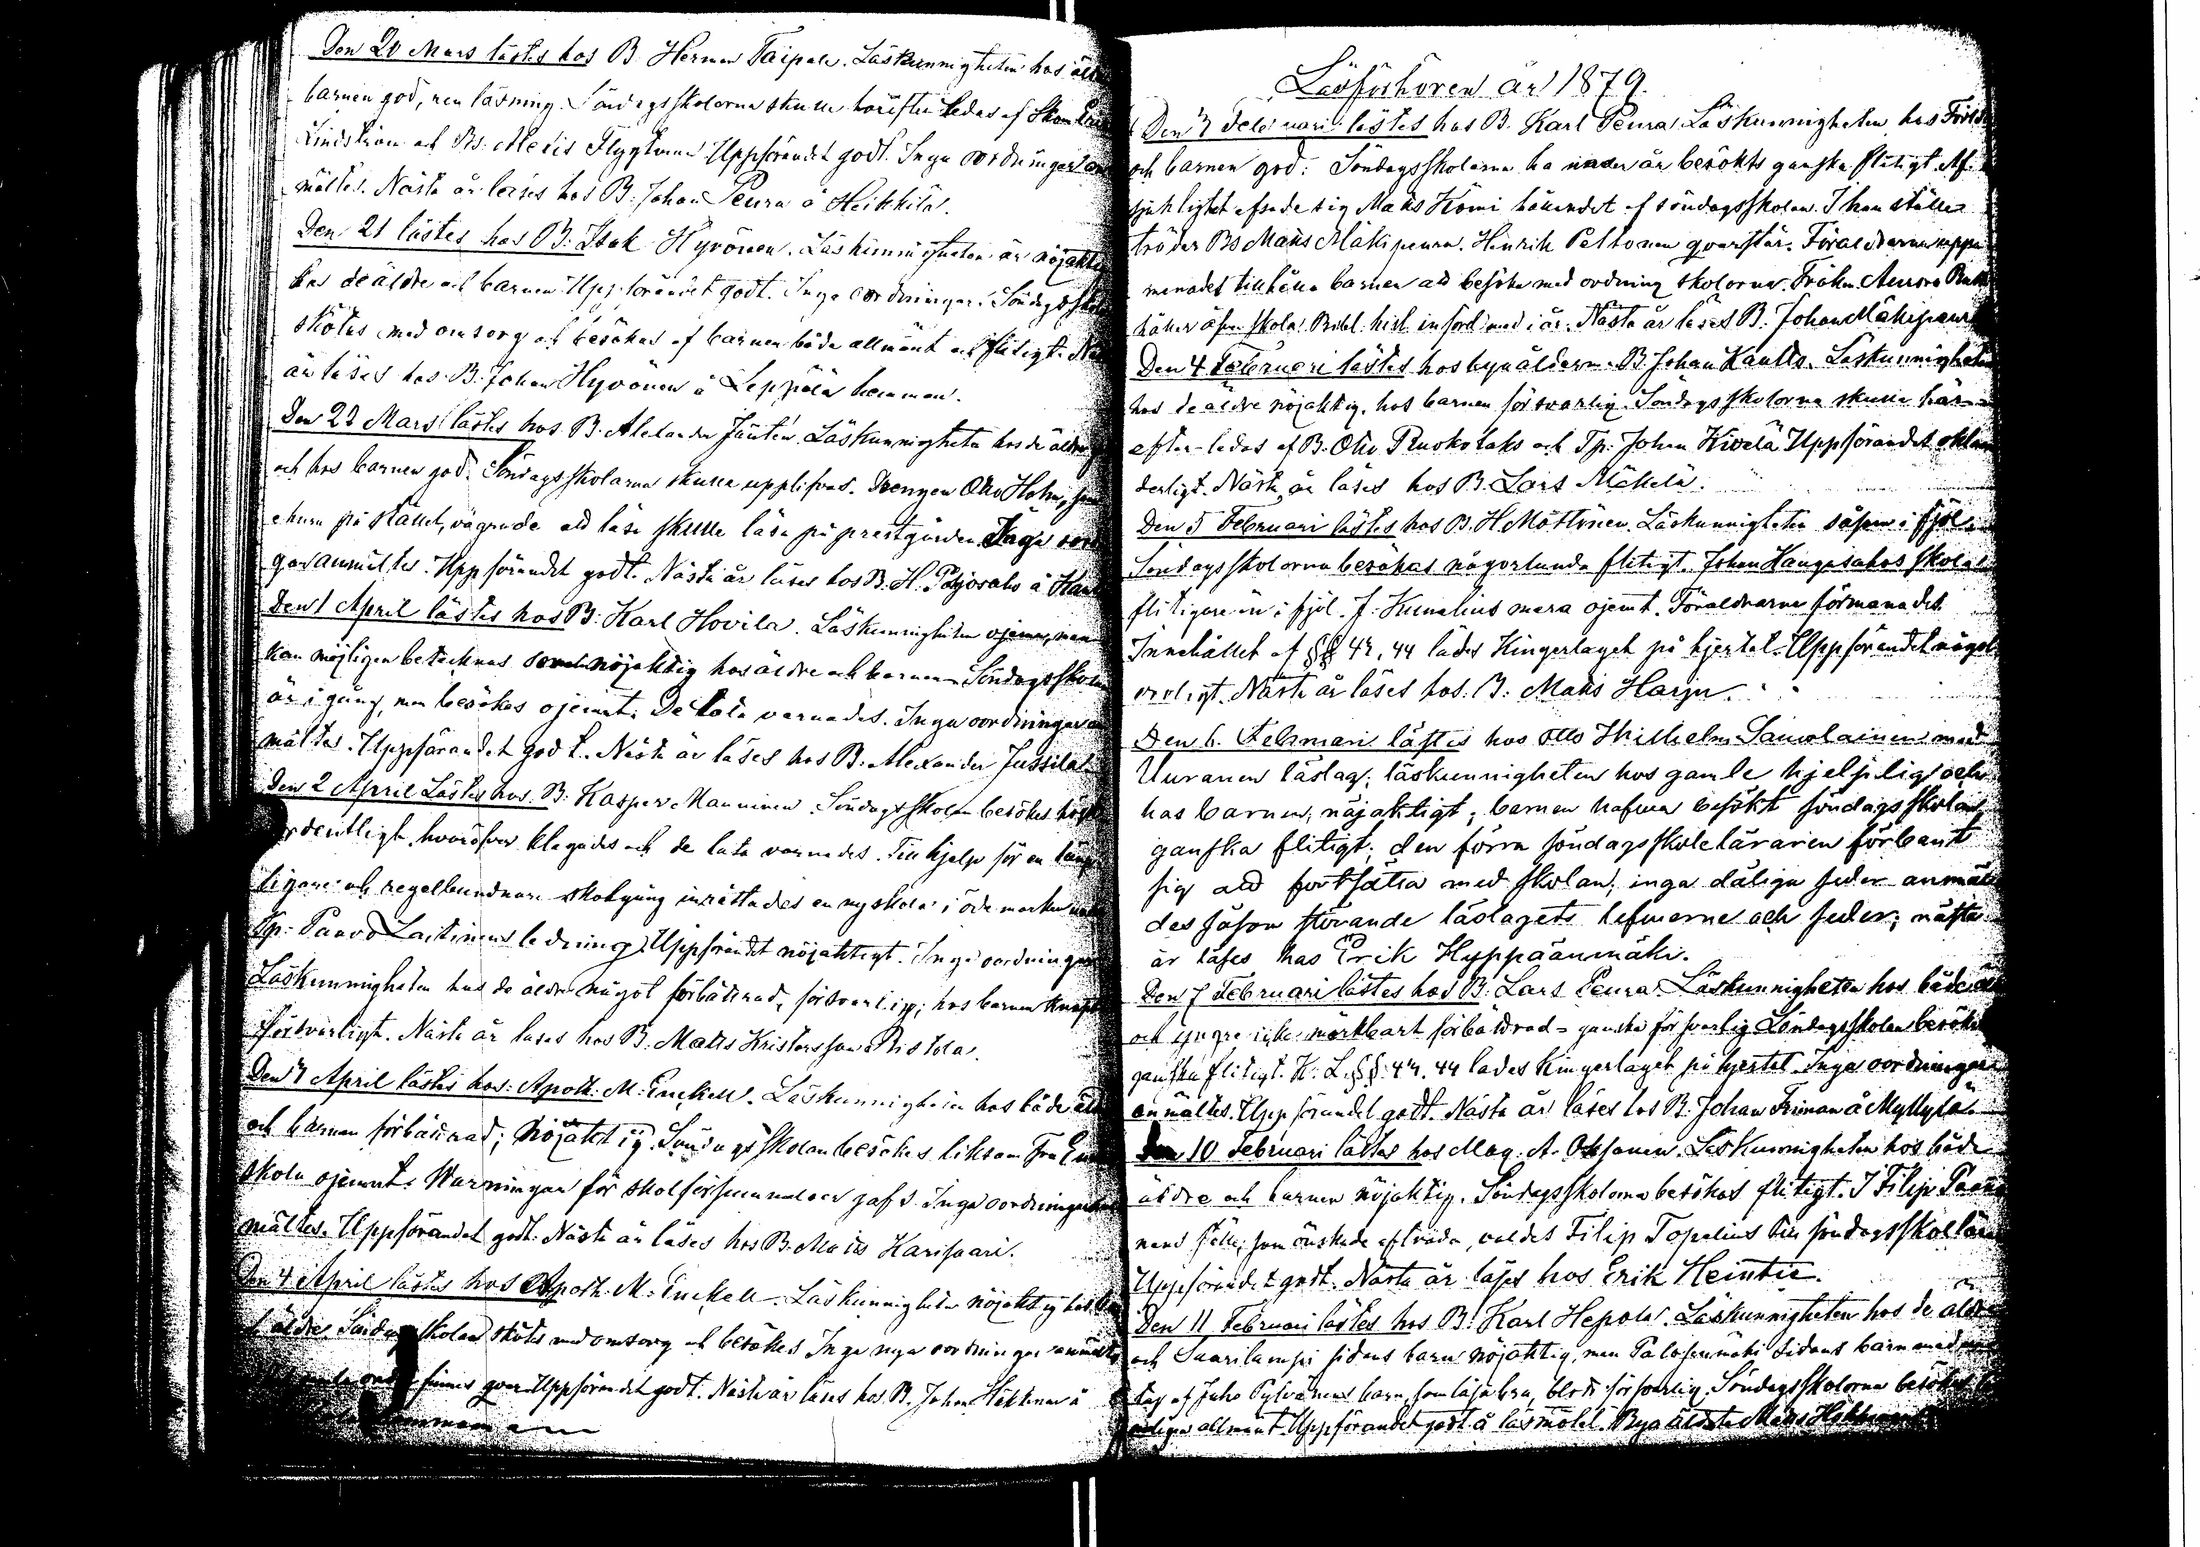 Den 20 Mars lästes hos B. Herman Taipale. Läskunnigheten hos äld
barnen god, ren läsning. Söndagsskolorna skulle härefter ledas af Skom
Lindström och Bs. Alexis Flygtman Uppförandet godt. Inga oordningar an
mältes. Nästa år läses hos B. Johan Peura å Heikkilä.
Den 21 lästes hos B. Isak Hyvönen. Läskunnigheten är nöjakti
hos de äldre och barnen Uppförandet godt. Inga oordningar. Söndagsskol
skötes med omsorg och besökes af barnen både allmänt och flitigt. Näs
år läses hos B. Johan Hyvönen å Leppälä hemman.
Den 22 Mars lästes hos B. Alexander Jäntti. Läskunnigheten hos de äldre
och hos barnen god. Söndagsskolorna skulle upplifvas. Drengen Otto Holm, som
ehuru på stället, vägrade att läsa skulle läsa på prestgården. Inga oord
gar anmältes. Uppförandet godt. Nästa år läses hos B. H. Pajosalo å
Den 1 April lästes hos B. Karl Hovila. Läskunnigheten ojemn, men
kan möjligen betecknas som nöjaktig hos äldre och barnen. Söndagsskolan
är i gång, men besökes ojemnt. De lata varnades. Inga oordningar an
mältes. Uppförandet godt. Nästa år läses hos B. Alexander Jussila.
Den 2 April Lästes hos B. Kasper Manninen. Söndagsskolan besökes högst
ordentligt, hvaröfver klagades och de lata varnades. Till hjelp för en
ligare och regelbundnare skolgång inrättades en ny skola i ödemarken under
Tp. Paavo Laitinens ledning. Uppförandet nöjaktigt. Inga oordningar
Läskunnigheten hos de äldre något förbättrad, försvarlig; hos barnen knapt
försvarligt. Nästa år läses hos B. Matts Kristersson å Ristola.
Den 3 April lästes hos Apoth. M. Enckell. Läskunnigheten hos både äld
och barnen förbättrad; Nöjaktig. Söndagsskolan besökes liksom Fru En
skola ojemnt. Warningar för skolförsummelser gafs. Inga oordningar
mältes. Uppförandet godt. Nästa år läses hos B. Matts Karisaari.
Den 4 April lästes hos Apoth. M. Enckell. Läskunnigheten nöjaktig hos
äldre. Söndagsskolan skötes med omsorg och besökes. Inga nya oordningar anmält
finnes qvar. Uppförandet godt. Nästa år läses hos B. Johan Häkkinen å
Läsförhören år 1879.
Den 3 Februari lästes hos B. Karl Peura. Läskunnigheten hos Föräld
och barnen god. Söndagsskolorna ha under år besökts ganska flitigt. Af
sjuklighet afsade sig Matts Kömi hållandet af söndagsskolan. I hans ställe
träder Bs Matts Mäkipeura. Hinrik Peltonen qvarstår. Föräldrarna uppma
manades tillhålla barnen att besöka med ordning skolorna. Fröken Aurora
håller äfven skola. Bibl. hist. införd med i år. Nästa år läses B. Johan Mäkipeura
Den 4 Februari lästes hos byäldern. B. Johan Kautto. Läskunnigheten
hos de äldre nöjaktig, hos barnen försvarlig. Söndagsskolorna skulle här-
efter ledas af B. Otto Ruokolaks och Tp. Johan Kivelä Uppförandet oklan
derligt. Nästa år läses hos B. Lars Mäkelä.
Den 5 Februari lästes hos B. H. Möttönen. Läskunnigheten såsom i fjol
Söndagsskolorna besökas någorlunda flitigt. Johan Kangasahos skola
flitigare än i fjol. J. Kumelius mera ojemt. Föräldrarna förmanades.
Innehållet af §§ 43, 44 lades Kingerlaget på hjertat. Uppförandet någol
ordligt. Nästa år läses hos B. Matts Harju.
Den 6. Februari lästes hos Otto Wilhelm Savolainen med
Uuranen läslag; läskunnigheten hos gamle hjelplig och
hos barnen, nöjaktigt; barnen hafwa besökt söndagsskolan
ganska flitigt; den förra söndagsskoleläraren förbant
sig att fortsätta med skolan; inga dåliga seder anmäl
des såsom störande läslagets lefwerne och seder; nästa
år läses hos Erik Hyppäänmäki.
Den 7 Februari lästes hos B. Lars Peura. Läskunnigheten hos både äld
och yngre icke märkbart förbättrad - ganska försvarlig. Söndagsskolan besökes
ganska flitigt. K. L. §§. 43. 44 lades Kingerlaget på hjertat. Inga oordningar
anmältes. Uppförandet godt. Nästa år läses hos B. Johan Friman å Myllylä
Den 10 Februari lästes hos Mag. A. Oksanen. Läskunnigheten hos både
äldre och barnen nöjaktig. Söndagsskolorna besökas flitigt. I Filip Paana
nens ställe, som önskade afträda, valdes Filip Topelius till söndagsskollära
Uppförandet godt. Nästa år läses hos Erik Heintie.
Den 11 Februari lästes hos B. Karl Hepola. Läskunnigheten hos de äldre
och Saarilampi sidans barn nöjaktig, men Palosenmäki sidans barn med
tag af Juho Pylvänens barn, som läsa bra, blott försvarlig. Söndagsskolorna besökas
allmänt. Uppförandet godt å läsmötet. Byaäldste Matts Häkkinen